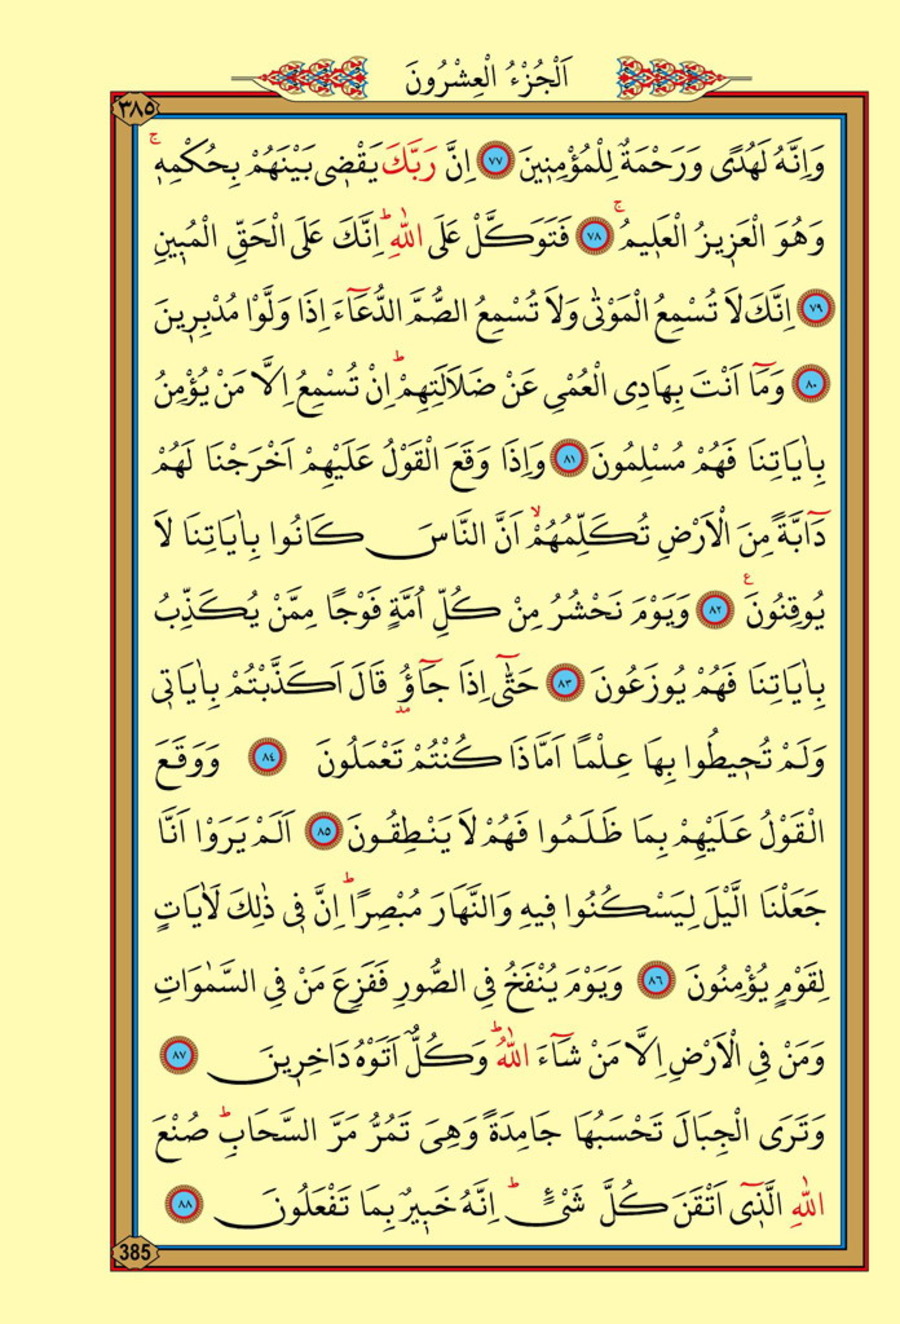 اَلْجُزْءُ الْعِشْرُونَ
٣٨٥
وَاِنَّهُ لَهُدًى وَرَحْمَةٌ لِلْمُؤْمِنٖينَ ٧٧ اِنَّ رَبَّكَ يَقْضٖى بَيْنَهُمْ بِحُكْمِهٖۚ
وَهُوَ الْعَزٖيزُ الْعَلٖيمُۚ ٧٨ فَتَوَكَّلْ عَلَى اللّٰهِؕ اِنَّكَ عَلَى الْحَقِّ الْمُبٖينِ
٧٩ اِنَّكَ لَا تُسْمِعُ الْمَوْتٰى وَلَا تُسْمِعُ الصُّمَّ الدُّعَٓاءَ اِذَا وَلَّوْا مُدْبِرٖينَ
٨٠ وَمَٓا اَنْتَ بِهَادِى الْعُمْىِ عَنْ ضَلَالَتِهِمْؕ اِنْ تُسْمِعُ اِلَّا مَنْ يُؤْمِنُ
بِاٰيَاتِنَا فَهُمْ مُسْلِمُونَ ٨١ وَاِذَا وَقَعَ الْقَوْلُ عَلَيْهِمْ اَخْرَجْنَا لَهُمْ
دَٓابَّةً مِنَ الْاَرْضِ تُكَلِّمُهُمْۙ اَنَّ النَّاسَ كَانُوا بِاٰيَاتِنَا لَا
يُوقِنُونَ ع ٨٢ وَيَوْمَ نَحْشُرُ مِنْ كُلِّ اُمَّةٍ فَوْجًا مِمَّنْ يُكَذِّبُ
بِاٰيَاتِنَا فَهُمْ يُوزَعُونَ ٨٣ حَتّٰٓى اِذَا جَٓاؤُ قَالَ اَكَذَّبْتُمْ بِاٰيَاتٖى
وَلَمْ تُحٖيطُوا بِهَا عِلْمًا اَمَّاذَا كُنْتُمْ تَعْمَلُونَ ٨٤ وَوَقَعَ
الْقَوْلُ عَلَيْهِمْ بِمَا ظَلَمُوا فَهُمْ لَا يَنْطِقُونَ ٨٥ اَلَمْ يَرَوْا اَنَّا
جَعَلْنَا الَّيْلَ لِيَسْكُنُوا فٖيهِ وَالنَّهَارَ مُبْصِرًاؕ اِنَّ فٖى ذٰلِكَ لَاٰيَاتٍ
لِقَوْمٍ يُؤْمِنُونَ ٨٦ وَيَوْمَ يُنْفَخُ فِى الصُّورِ فَفَزِعَ مَنْ فِى السَّمٰوَاتِ
وَمَنْ فِى الْاَرْضِ اِلَّا مَنْ شَٓاءَ اللّٰهُؕ وَكُلٌّ اَتَوْهُ دَاخِرٖينَ ٨٧
وَتَرَى الْجِبَالَ تَحْسَبُهَا جَامِدَةً وَهِىَ تَمُرُّ مَرَّ السَّحَابِؕ صُنْعَ
اللّٰهِ الَّذٖٓى اَتْقَنَ كُلَّ شَىْءٍؕ اِنَّهُ خَبٖيرٌ بِمَا تَفْعَلُونَ ٨٨
385